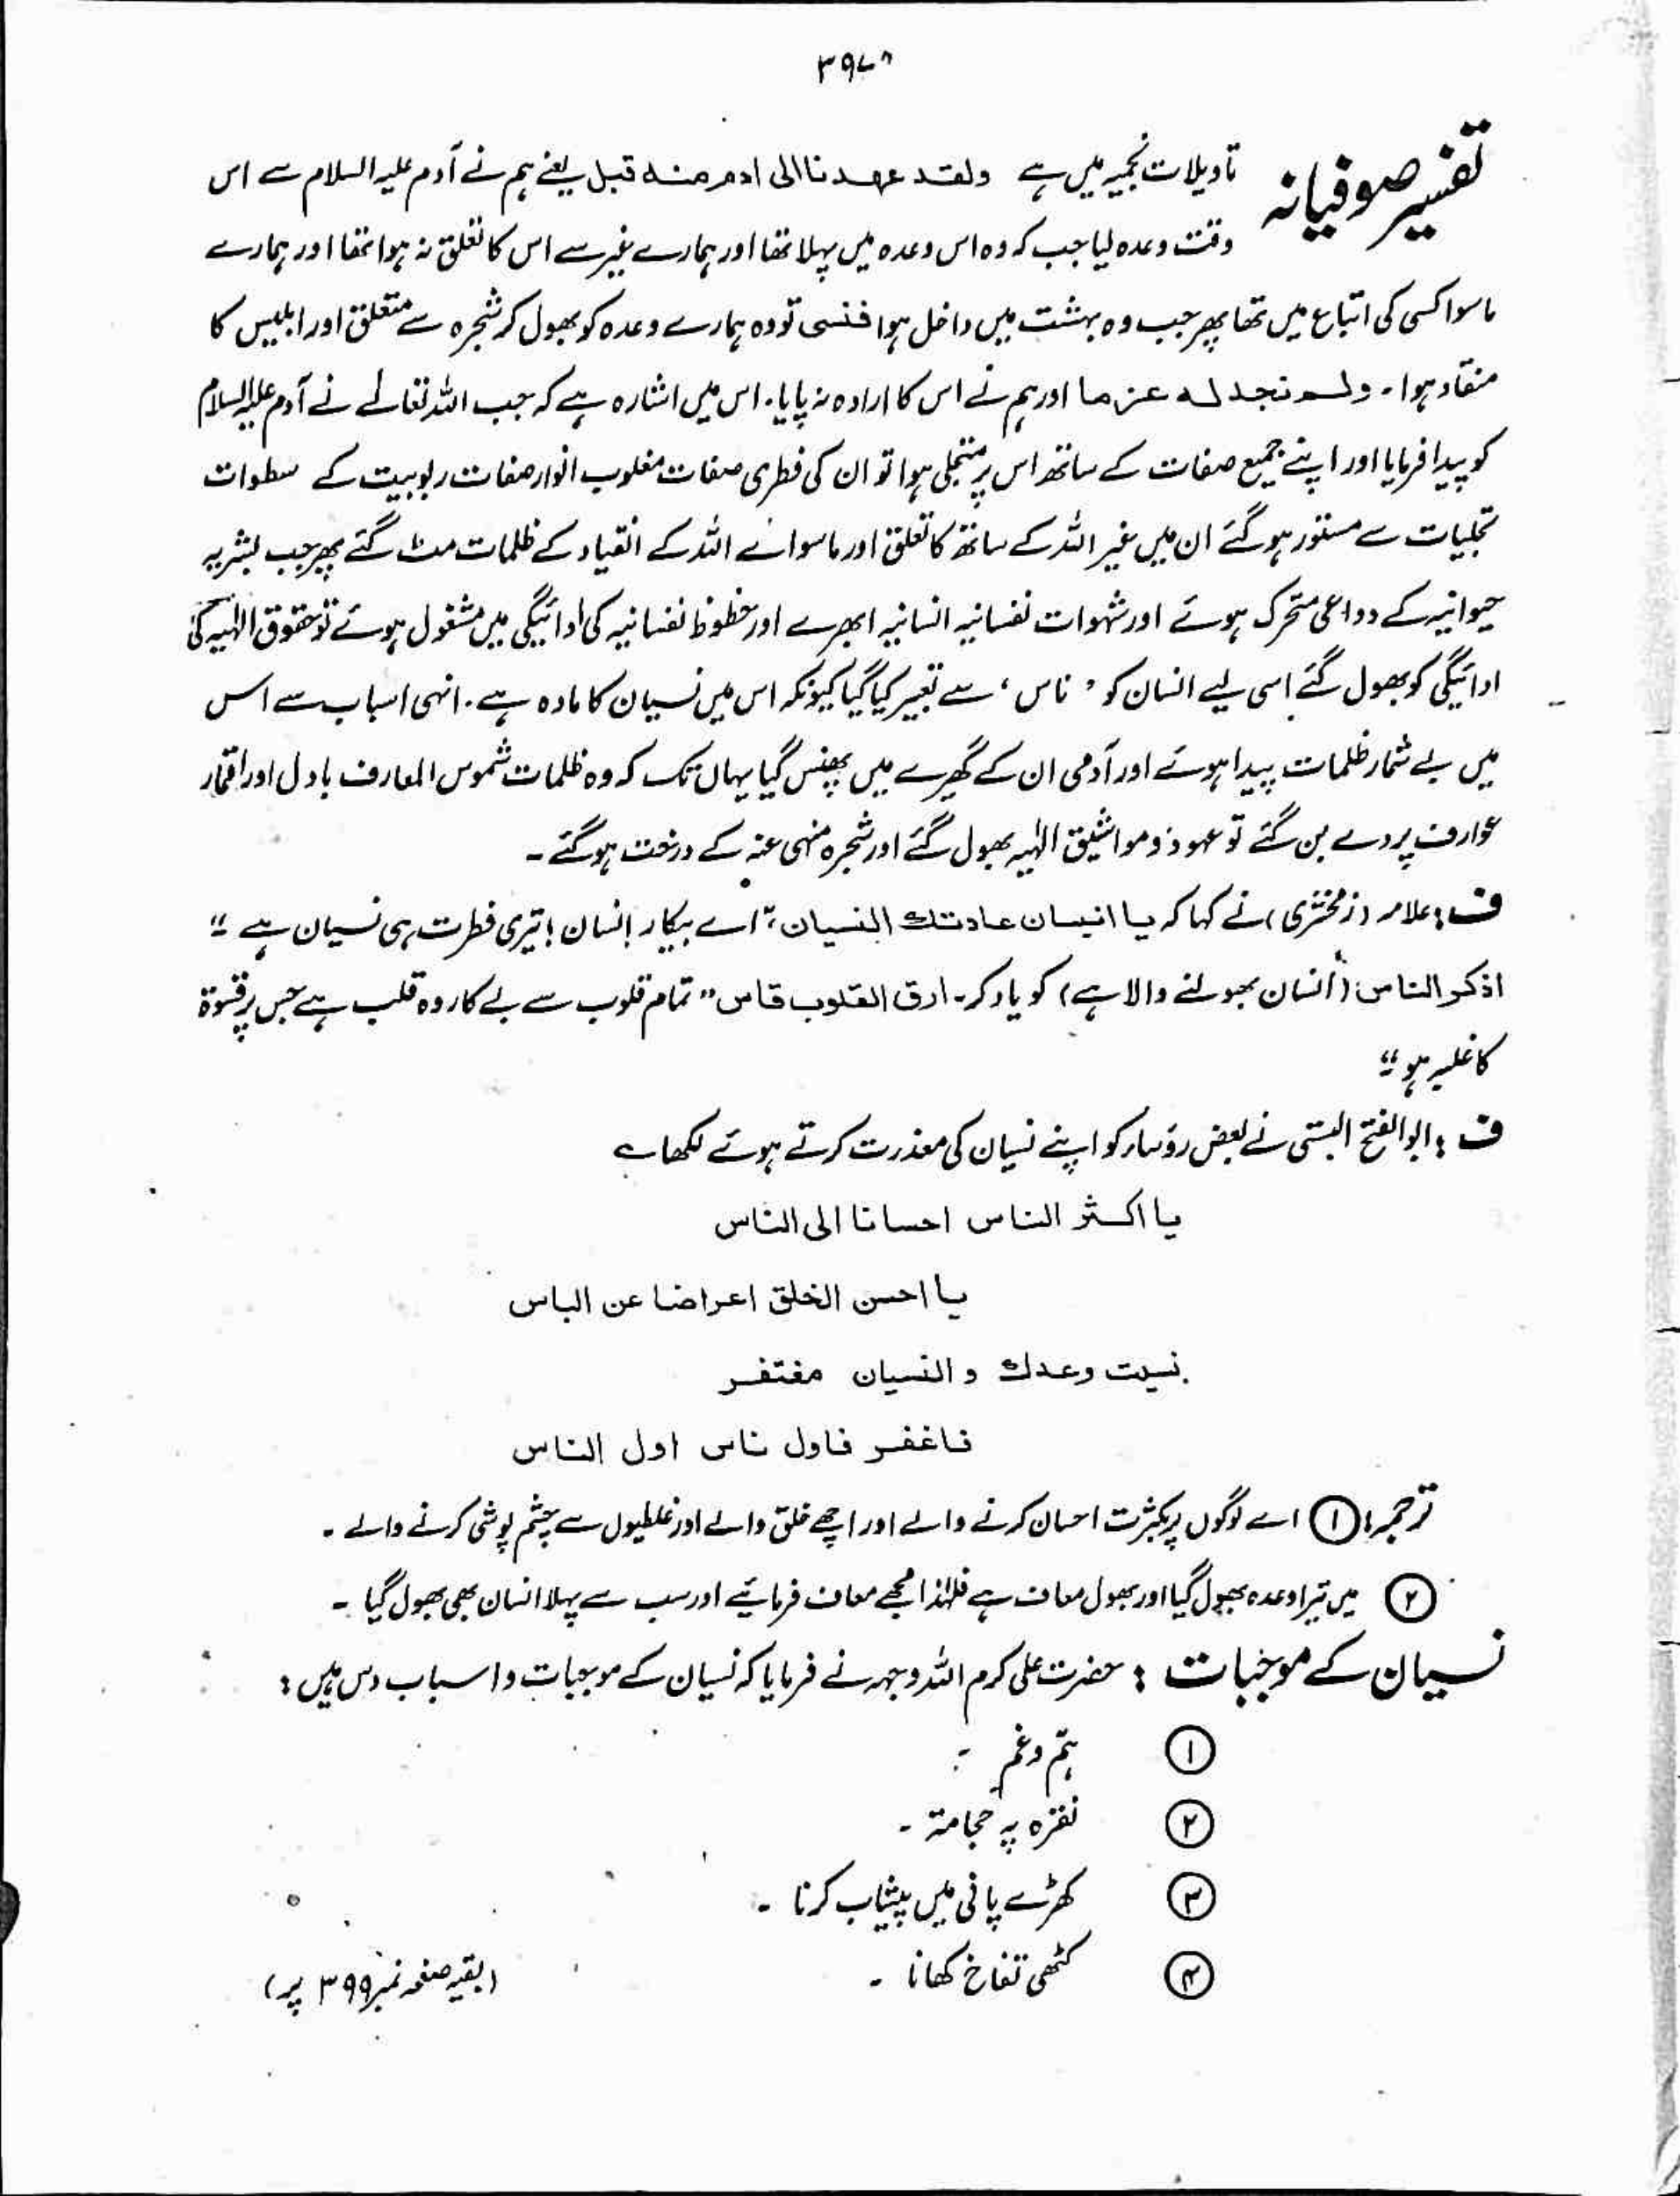 ۳۹۷۸
تفسیر صوفیانہ
تاویلات نجمیہ میں ہے ولقد عھدنا الی ادم منہ قبل یعنے ہم نے آدم علیہ السلام سے اس
وقت وعدہ لیا جب کہ وہ اس وعدہ میں پہلا تھا اور ہمارے غیر سے اس کا تعلق نہ ہوا تھا اور ہمارے
ماسوا کسی کی اتباع میں تھا پھر جب وہ بہشت میں داخل ہوا فنسی تو وہ ہمارے وعدہ کو بھول کر شجرہ سے متعلق اور ابلیس کا
منقاد ہوا۔ ولم نجد لہ عزما اور ہم نے اس کا ارادہ نہ پایا۔ اس میں اشارہ ہے کہ جب اللہ تعالے نے آدم علیہ السلام
کو پیدا فرمایا اور اپنے جمیع صفات کے ساتھ اس پر متجلی ہوا تو ان کی فطری صفات مغلوب انوار صفات ربوبیت کے سطوات
تجلیات سے مستور ہو گئے ان میں غیر اللہ کے ساتھ کا تعلق اور ماسوائے اللہ کے انقیاد کے ظلمات مٹ گئے پھر جب بشریہ
حیوانیہ کے دواعی متحرک ہوئے اور شہوات نفسانیہ انسانیہ ابھرے اور حظوظ نفسانیہ کی ادائیگی میں مشغول ہوئے تو حقوق الٰہیہ کی
ادائیگی کو بھول گئے اسی لیے انسان کو ’ ناس ‘ سے تعبیر کیا گیا کیونکہ اس میں نسیان کا مادہ ہے۔ انہی اسباب سے اس
میں بے شمار ظلمات پیدا ہوئے اور آدمی ان کے گھیرے میں پھنس گیا یہاں تک کہ وہ ظلمات شموس المعارف بادل اور اقمار
عوارف پردے بن گئے تو عہود و مواثیق الٰہیہ بھول گئے اور شجرہ منہی عنہ کے درخت ہو گئے ۔
ف : علامہ (زمخشری) نے کہا کہ یا انسان عادتك النسیان، ”اے بیکار انسان ! تیری فطرت ہی نسیان ہے “
اذکر الناس (انسان بھولنے والا ہے) کو یاد کر۔ ارق القلوب قاس ” تمام قلوب سے بے کار وہ قلب ہے جس پر قسوۃ
کا غلبہ ہو “
ف : ابو الفتح البستی نے بعض رؤساء کو اپنے نسیان کی معذرت کرتے ہوئے لکھا ے
یا اکثر الناس احسانا الی الناس
یا احسن الخلق اعراضا عن الباس
نسیت وعدك والنسیان مغتفر
فاغفر فاول ناس اول الناس
ترجمہ : ① اے لوگوں پر بکثرت احسان کرنے والے اور اچھے خلق والے اور غلطیوں سے چشم پوشی کرنے والے ۔
② میں تیرا وعدہ بھول گیا اور بھول معاف ہے فلہٰذا مجھے معاف فرمائیے اور سب سے پہلا انسان بھی بھول گیا ۔
نسیان کے موجبات : حضرت علی کرم اللہ وجہہ نے فرمایا کہ نسیان کے موجبات و اسباب دس ہیں :
① ہم و غم ۔
② نقرہ پہ حجامۃ ۔
③ کھڑے پانی میں پیشاب کرنا ۔
④ کٹھی تفاخ کھانا ۔
(بقیہ صفحہ نمبر ۳۹۹ پر)